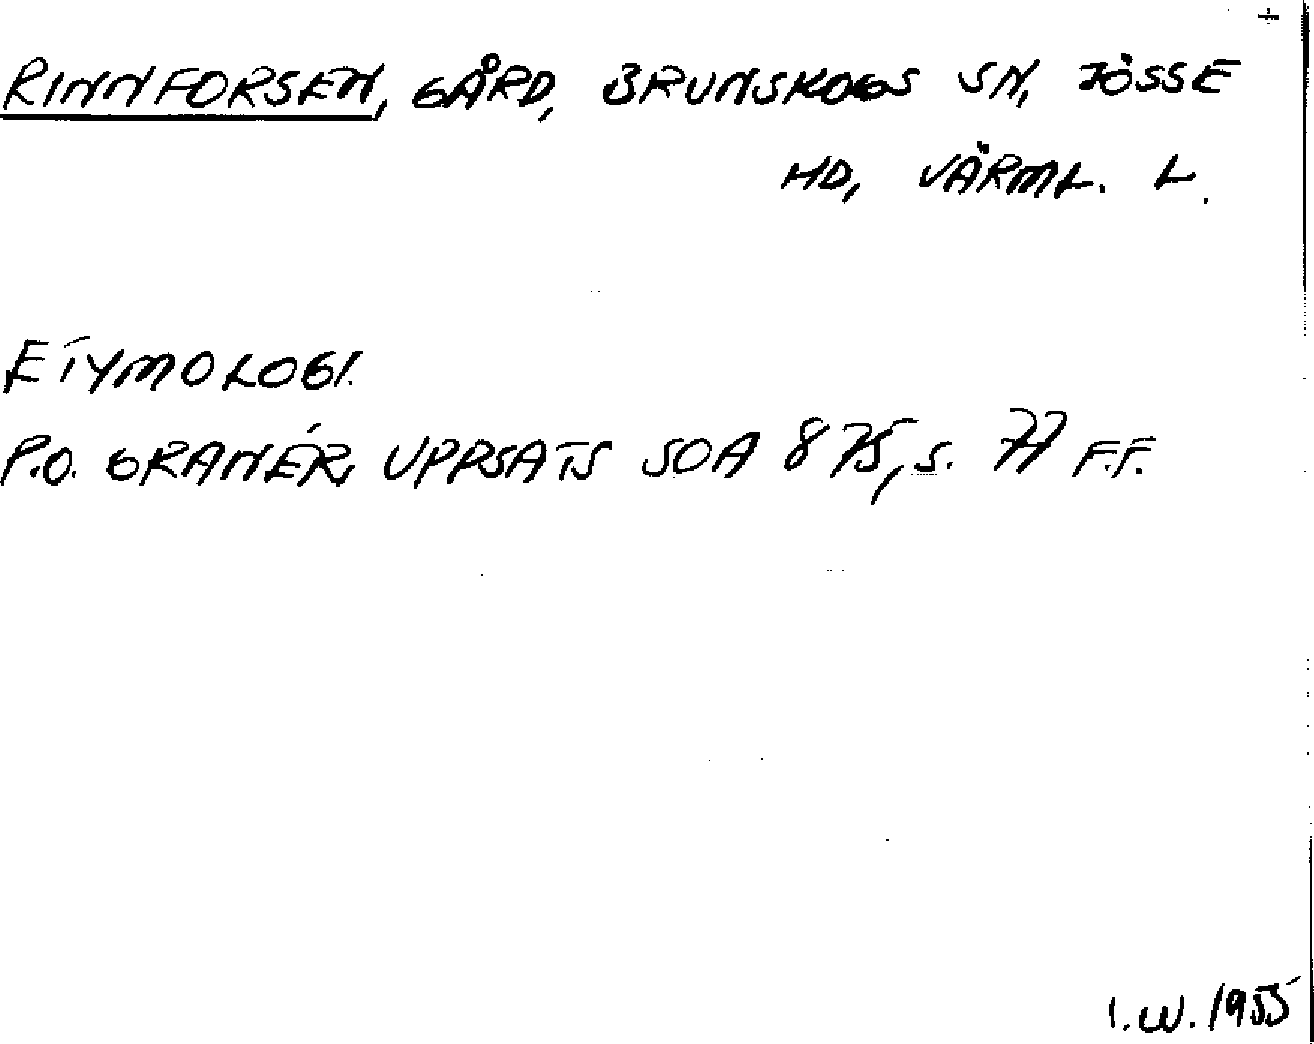 +
RINNFORSEN, GÅRD, BRUNSKOGS SN, JÖSSE
HD, VÄRML. L.
ETYMOLOGI.
P.O. GRANÉR, UPPSATS SOA 875, S. 77 F.F.
I.W. 1955